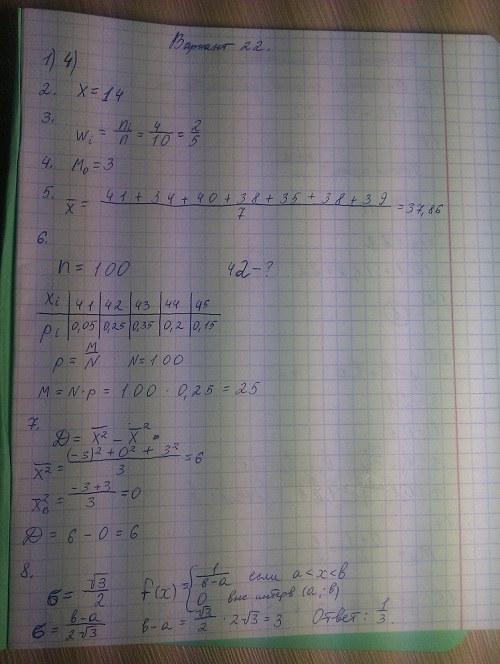 Вариант 22.
1) 4)
2. X = 14
3.
Wᵢ = nᵢ/n = 4/10 = 2/5
4. M₀ = 3
5. x̅ = (41 + 34 + 40 + 38 + 35 + 38 + 39)/7 = 37,86
6.
n = 100 42 - ?
xᵢ | 41 | 42 | 43 | 44 | 45
pᵢ | 0,05 | 0,25 | 0,35 | 0,2 | 0,15
p = M/N N = 100
M = N · p = 100 · 0,25 = 25
7.
D = x̅² - x̅² =
x̅² = ((-3)² + 0² + 3²)/3 = 6
x̅²в = (-3 + 3)/3 = 0
D = 6 - 0 = 6
8.
σ = √3/2 f(x) = { 1/(в-a) если a < x < в
0 вне интерв (a; в)
σ = (в-a)/(2√3) в-a = √3/2 · 2√3 = 3 Ответ: 1/3.